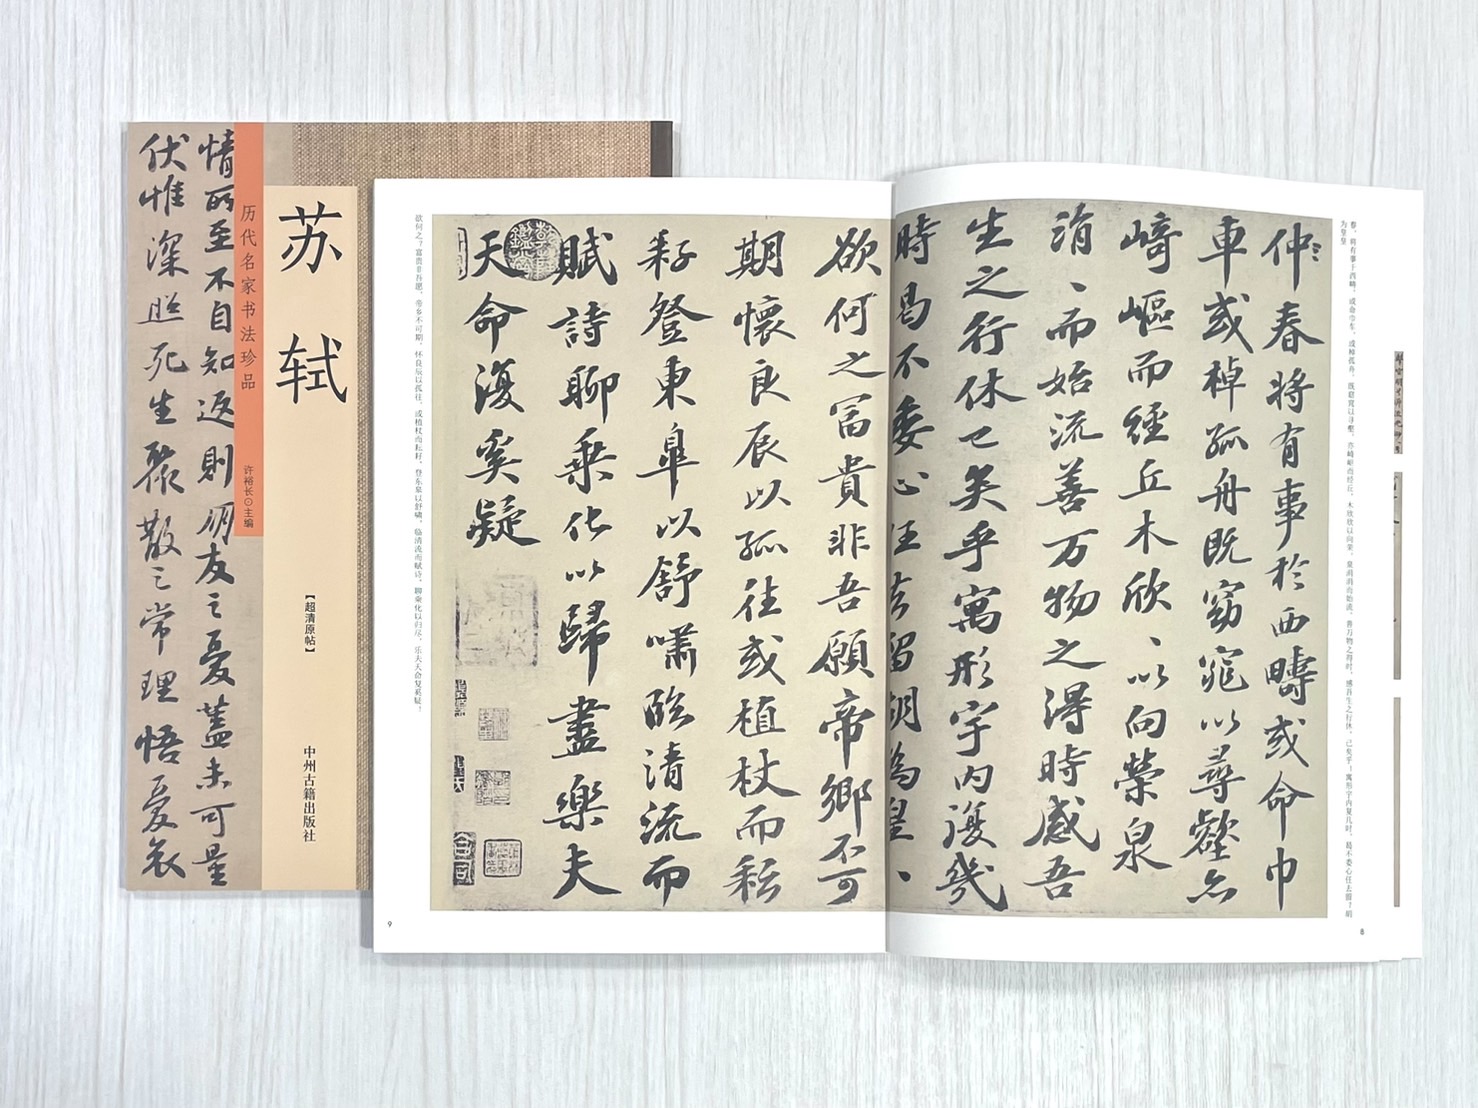 情所至不自知返則朋友之憂蓋未可量
伏惟深照死生聚散之常理悟憂哀
历代名家书法珍品
许裕长⊙主编
苏轼
【超清原帖】
中州古籍出版社
春，将有事于西畴。或命巾车，或棹孤舟，既窈窕以寻壑，亦崎岖而经丘。木欣欣以向荣，泉涓涓而始流。善万物之得时，感吾生之行休。已矣乎！寓形宇内复几时，曷不委心任去留？胡
为皇皇
仲春將有事於西疇或命巾
車或棹孤舟既窈窕以尋壑亦
崎嶇而經丘木欣、以向榮泉
涓、而始流善万物之得時感吾
生之行休已矣乎寓形宇内復幾
時曷不委心任去留胡為皇、
8
欲何之富貴非吾願帝鄉不可
期懷良辰以孤往或植杖而耘
耔登東皋以舒嘯臨清流而
賦詩聊乘化以歸盡樂夫
天命復奚疑
欲何之？富贵非吾愿，帝乡不可期。怀良辰以孤往，或植杖而耘耔。登东皋以舒啸，临清流而赋诗。聊乘化以归尽，乐夫天命复奚疑！
9